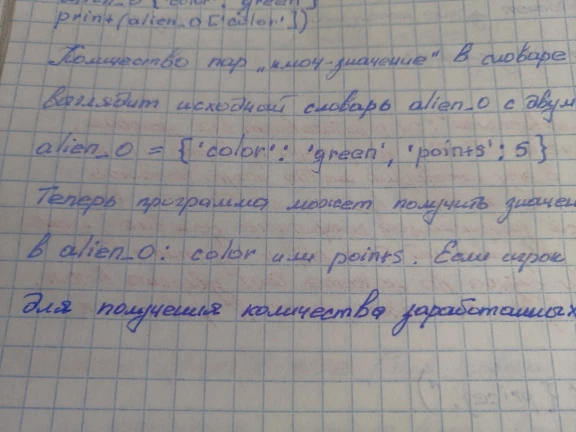 alien_0 {'color': 'green'}
print(alien_0['color'])
Количество пар „ключ-значение" в словаре
выглядит исходный словарь alien_0 с двум
alien_0 = {'color': 'green', 'points': 5}
Теперь программа может получить значен
в alien_0: color или points. Если игрок
для получения количества заработанных